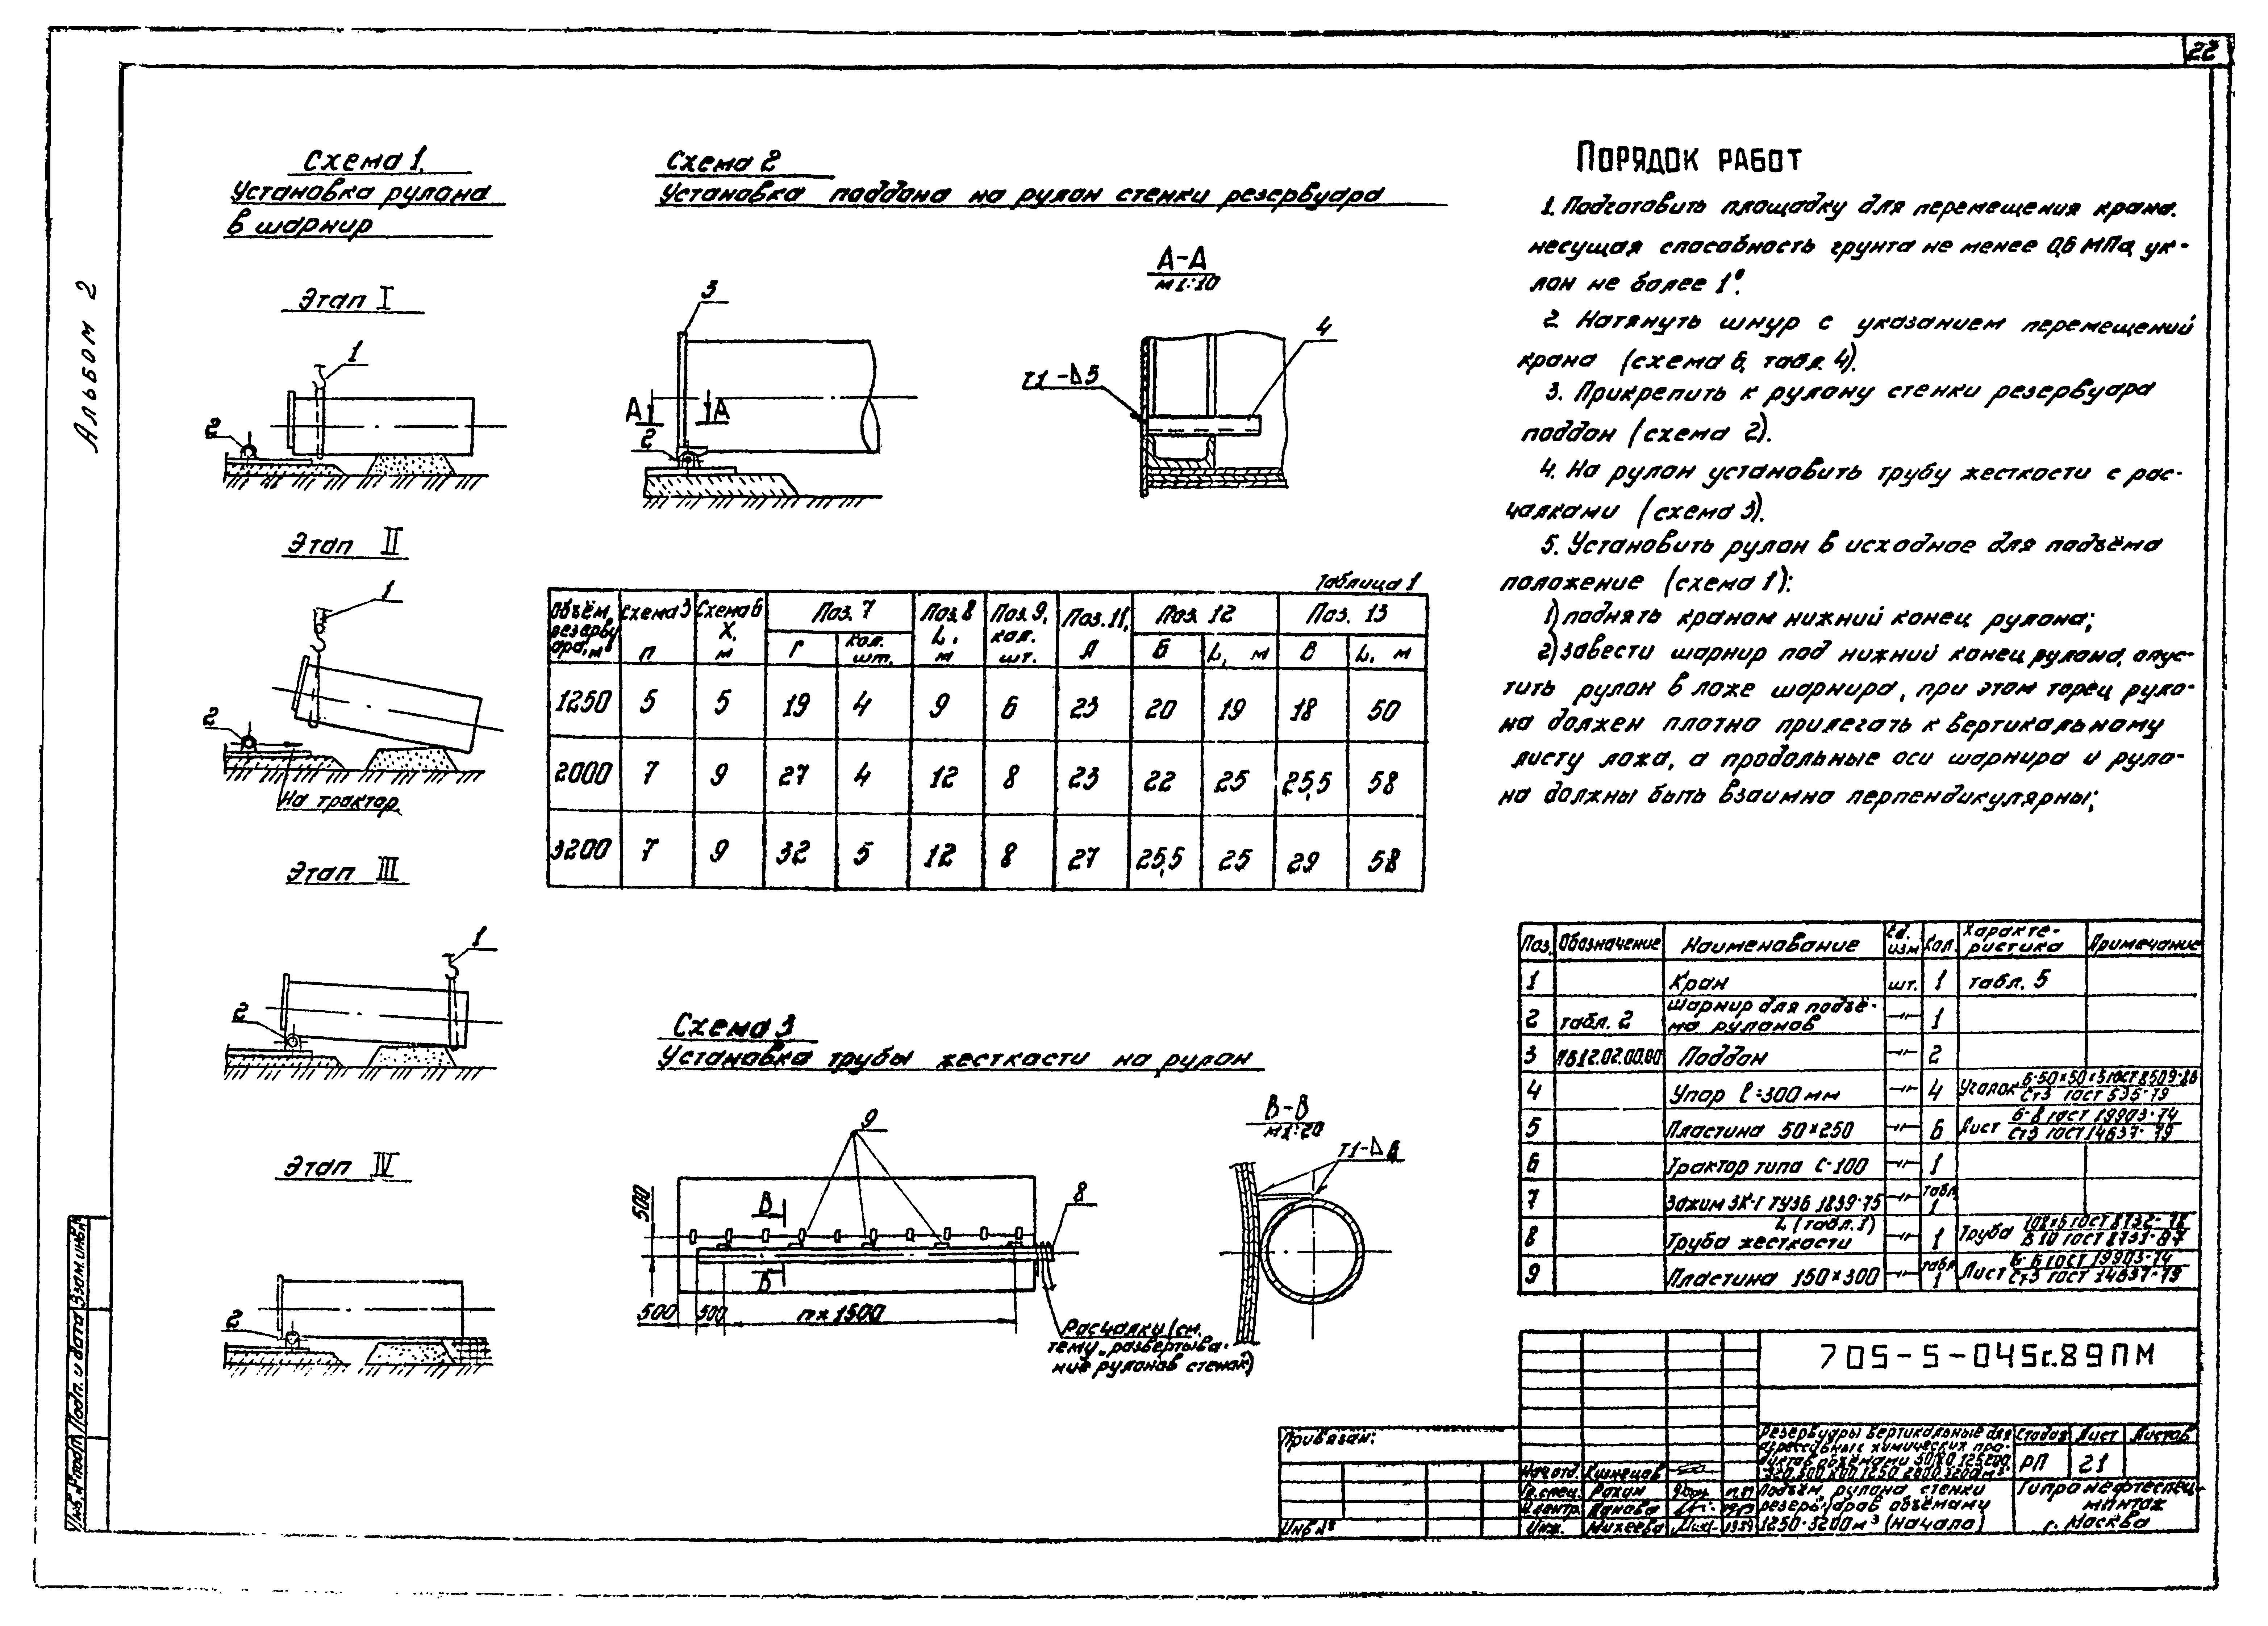 22
Альбом 2
Схема 1.
Установка рулона
в шарнир
Этап I
1
2
Этап II
1
2
На трактор
Этап III
1
2
Этап IV
2
Схема 2
Установка поддона на рулон стенки резервуара
3
А А
2
А-А
М 1:10
4
Т1-△5
Таблица 1
Объём резервуара, м³ | Схема 3 n | Схема 6 X, м | Поз. 7 Г | Поз. 7 кол. шт. | Поз. 8 L, м | Поз. 9, кол. шт. | Поз. 11, Л | Поз. 12 Б | Поз. 12 L, м | Поз. 13 В | Поз. 13 L, м
1250 | 5 | 5 | 19 | 4 | 9 | 6 | 23 | 20 | 19 | 18 | 50
2000 | 7 | 9 | 27 | 4 | 12 | 8 | 23 | 22 | 25 | 25,5 | 58
3200 | 7 | 9 | 32 | 5 | 12 | 8 | 27 | 25,5 | 25 | 29 | 58
Схема 3
Установка трубы жесткости на рулон
9
8
500
В
В
500
500
п×1500
Расчалки (см.
тему „развертыва-
ние рулонов стенок)
В-В
М 1:20
Т1-△
Порядок работ
1. Подготовить площадку для перемещения крана.
несущая способность грунта не менее 0,6 МПа, ук-
лон не более 1°.
2. Натянуть шнур с указанием перемещений
крана (схема 6, табл. 4).
3. Прикрепить к рулону стенки резервуара
поддон (схема 2).
4. На рулон установить трубу жесткости с рас-
чалками (схема 3).
5. Установить рулон в исходное для подъёма
положение (схема 1):
1) поднять краном нижний конец рулона;
2) завести шарнир под нижний конец рулона, опус-
тить рулон в ложе шарнира, при этом торец руло-
на должен плотно прилегать к вертикальному
листу ложа, а продольные оси шарнира и руло-
на должны быть взаимно перпендикулярны;
Поз. | Обозначение | Наименование | Ед. изм | Кол. | Характеристика | Примечание
1 | Кран | шт. | 1 | табл. 5
2 | табл. 2 | Шарнир для подъё-
ма рулонов | -"- | 1
3 | Поддон | -"- | 2
4 | Упор ℓ=300 мм | -"- | 4 | Уголок Б-50×50×5 ГОСТ 8509-86
Ст3 ГОСТ 535-79
5 | Пластина 50×250 | -"- | 6 | Лист Б-8 ГОСТ 19903-74
Ст3 ГОСТ 14637-79
6 | Трактор типа С-100 | -"- | 1
7 | Зажим ЗК-Г ТУ36 1839-75 | -"- | табл. 1
8 | Труба жесткости L (табл. 1) | -"- | 1 | Труба 108×6 ГОСТ 8732-78
В 10 ГОСТ 8731-87
9 | Пластина 150×300 | -"- | табл. 1 | Лист Б-6 ГОСТ 19903-74
Ст3 ГОСТ 14637-79
705-5-045с.89ПМ
Резервуары вертикальные для
агрессивных химических про-
дуктов объёмами
Стадия Лист Листов
РП 21
Подъём рулона стенки
резервуаров объёмами
1250-3200 м³ (начало)
Гипронефтеспец-
монтаж
г. Москва
Нач. отд. Кузнецов
Гл. спец. Рахин
Н. контр. Панова
Инж. Михеева 1989
Привязан:
Инв №
Инв. № подл. Подп. и дата Взам. инв. №